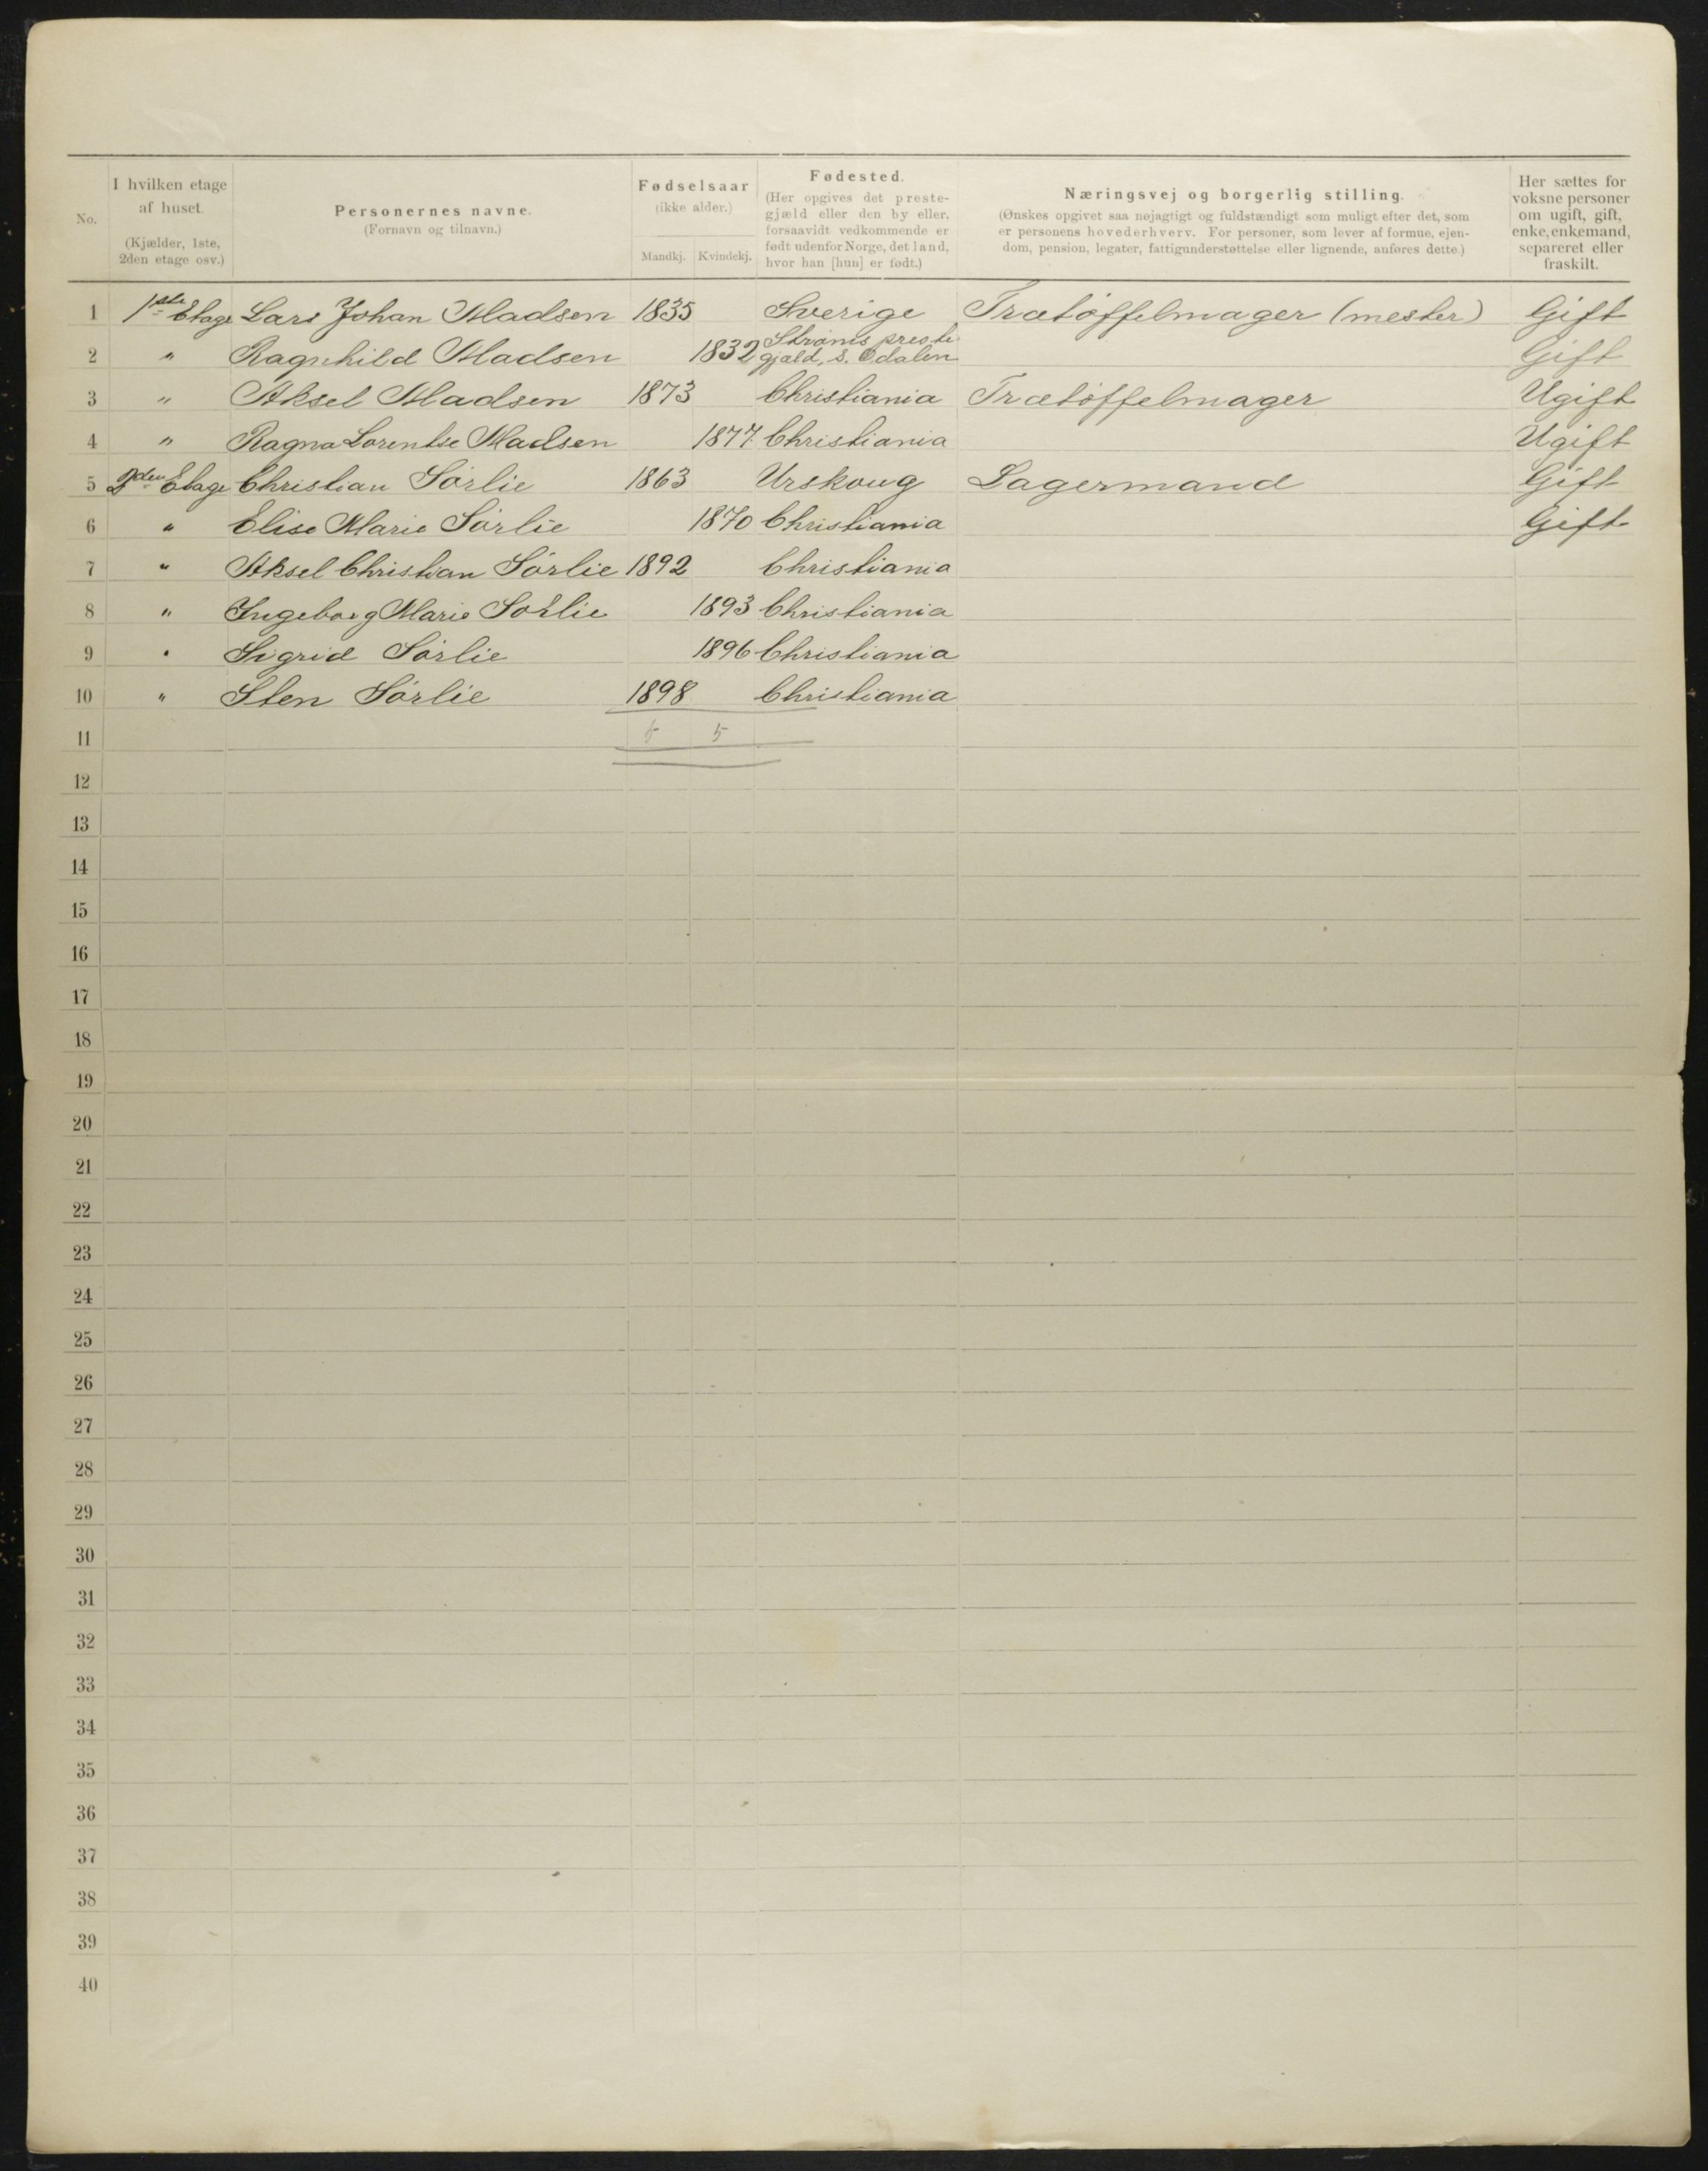 No.
I hvilken etage af huset.
(Kjælder, 1ste, 2den etage osv.)
Personernes navne.
(Fornavn og tilnavn.)
Fødselsaar
(ikke alder.)
Mandkj. Kvindekj.
Fødested.
(Her opgives det præste-
gjæld eller den by eller,
forsaavidt vedkommende er
født udenfor Norge, det land,
hvor han [hun] er født.)
Næringsvej og borgerlig stilling.
(Ønskes opgivet saa nøjagtigt og fuldstændigt som muligt efter det, som
er personens hovederhverv. For personer, som lever af formue, ejen-
dom, pension, legater, fattigunderstøttelse eller lignende, anføres dette.)
Her sættes for
voksne personer
om ugift, gift,
enke, enkemand,
separeret eller
fraskilt.
1 1ste Etage Lars Johan Madsen 1835 Sverige Trætøffelmager (mester) Gift
2 " Ragnhild Madsen 1832 Strøms preste gjæld, S. Odalen Gift
3 " Aksel Madsen 1873 Christiania Trætøffelmager Ugift
4 " Ragna Lorentse Madsen 1877 Christiania Ugift
5 2den Etage Christian Sörlie 1863 Urskoug Lagermand Gift
6 " Elise Marie Sörlie 1870 Christiania Gift
7 " Aksel Christian Sörlie 1892 Christiania
8 " Ingeborg Marie Sörlie 1893 Christiania
9 " Sigrid Sörlie 1896 Christiania
10 " Sten Sörlie 1898 Christiania
11 5 5
12
13
14
15
16
17
18
19
20
21
22
23
24
25
26
27
28
29
30
31
32
33
34
35
36
37
38
39
40